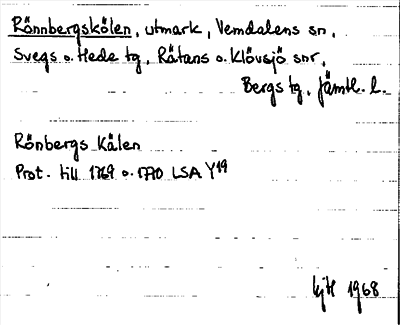 Rönnbergskölen, utmark, Vemdalens sn,
Svegs o. Hede tg, Rätans o. Klövsjö snr,
Bergs tg, Jämtl. l.
Rönbergs Kälen
Prot. till 1769 o. 1770 LSA Y19
1968